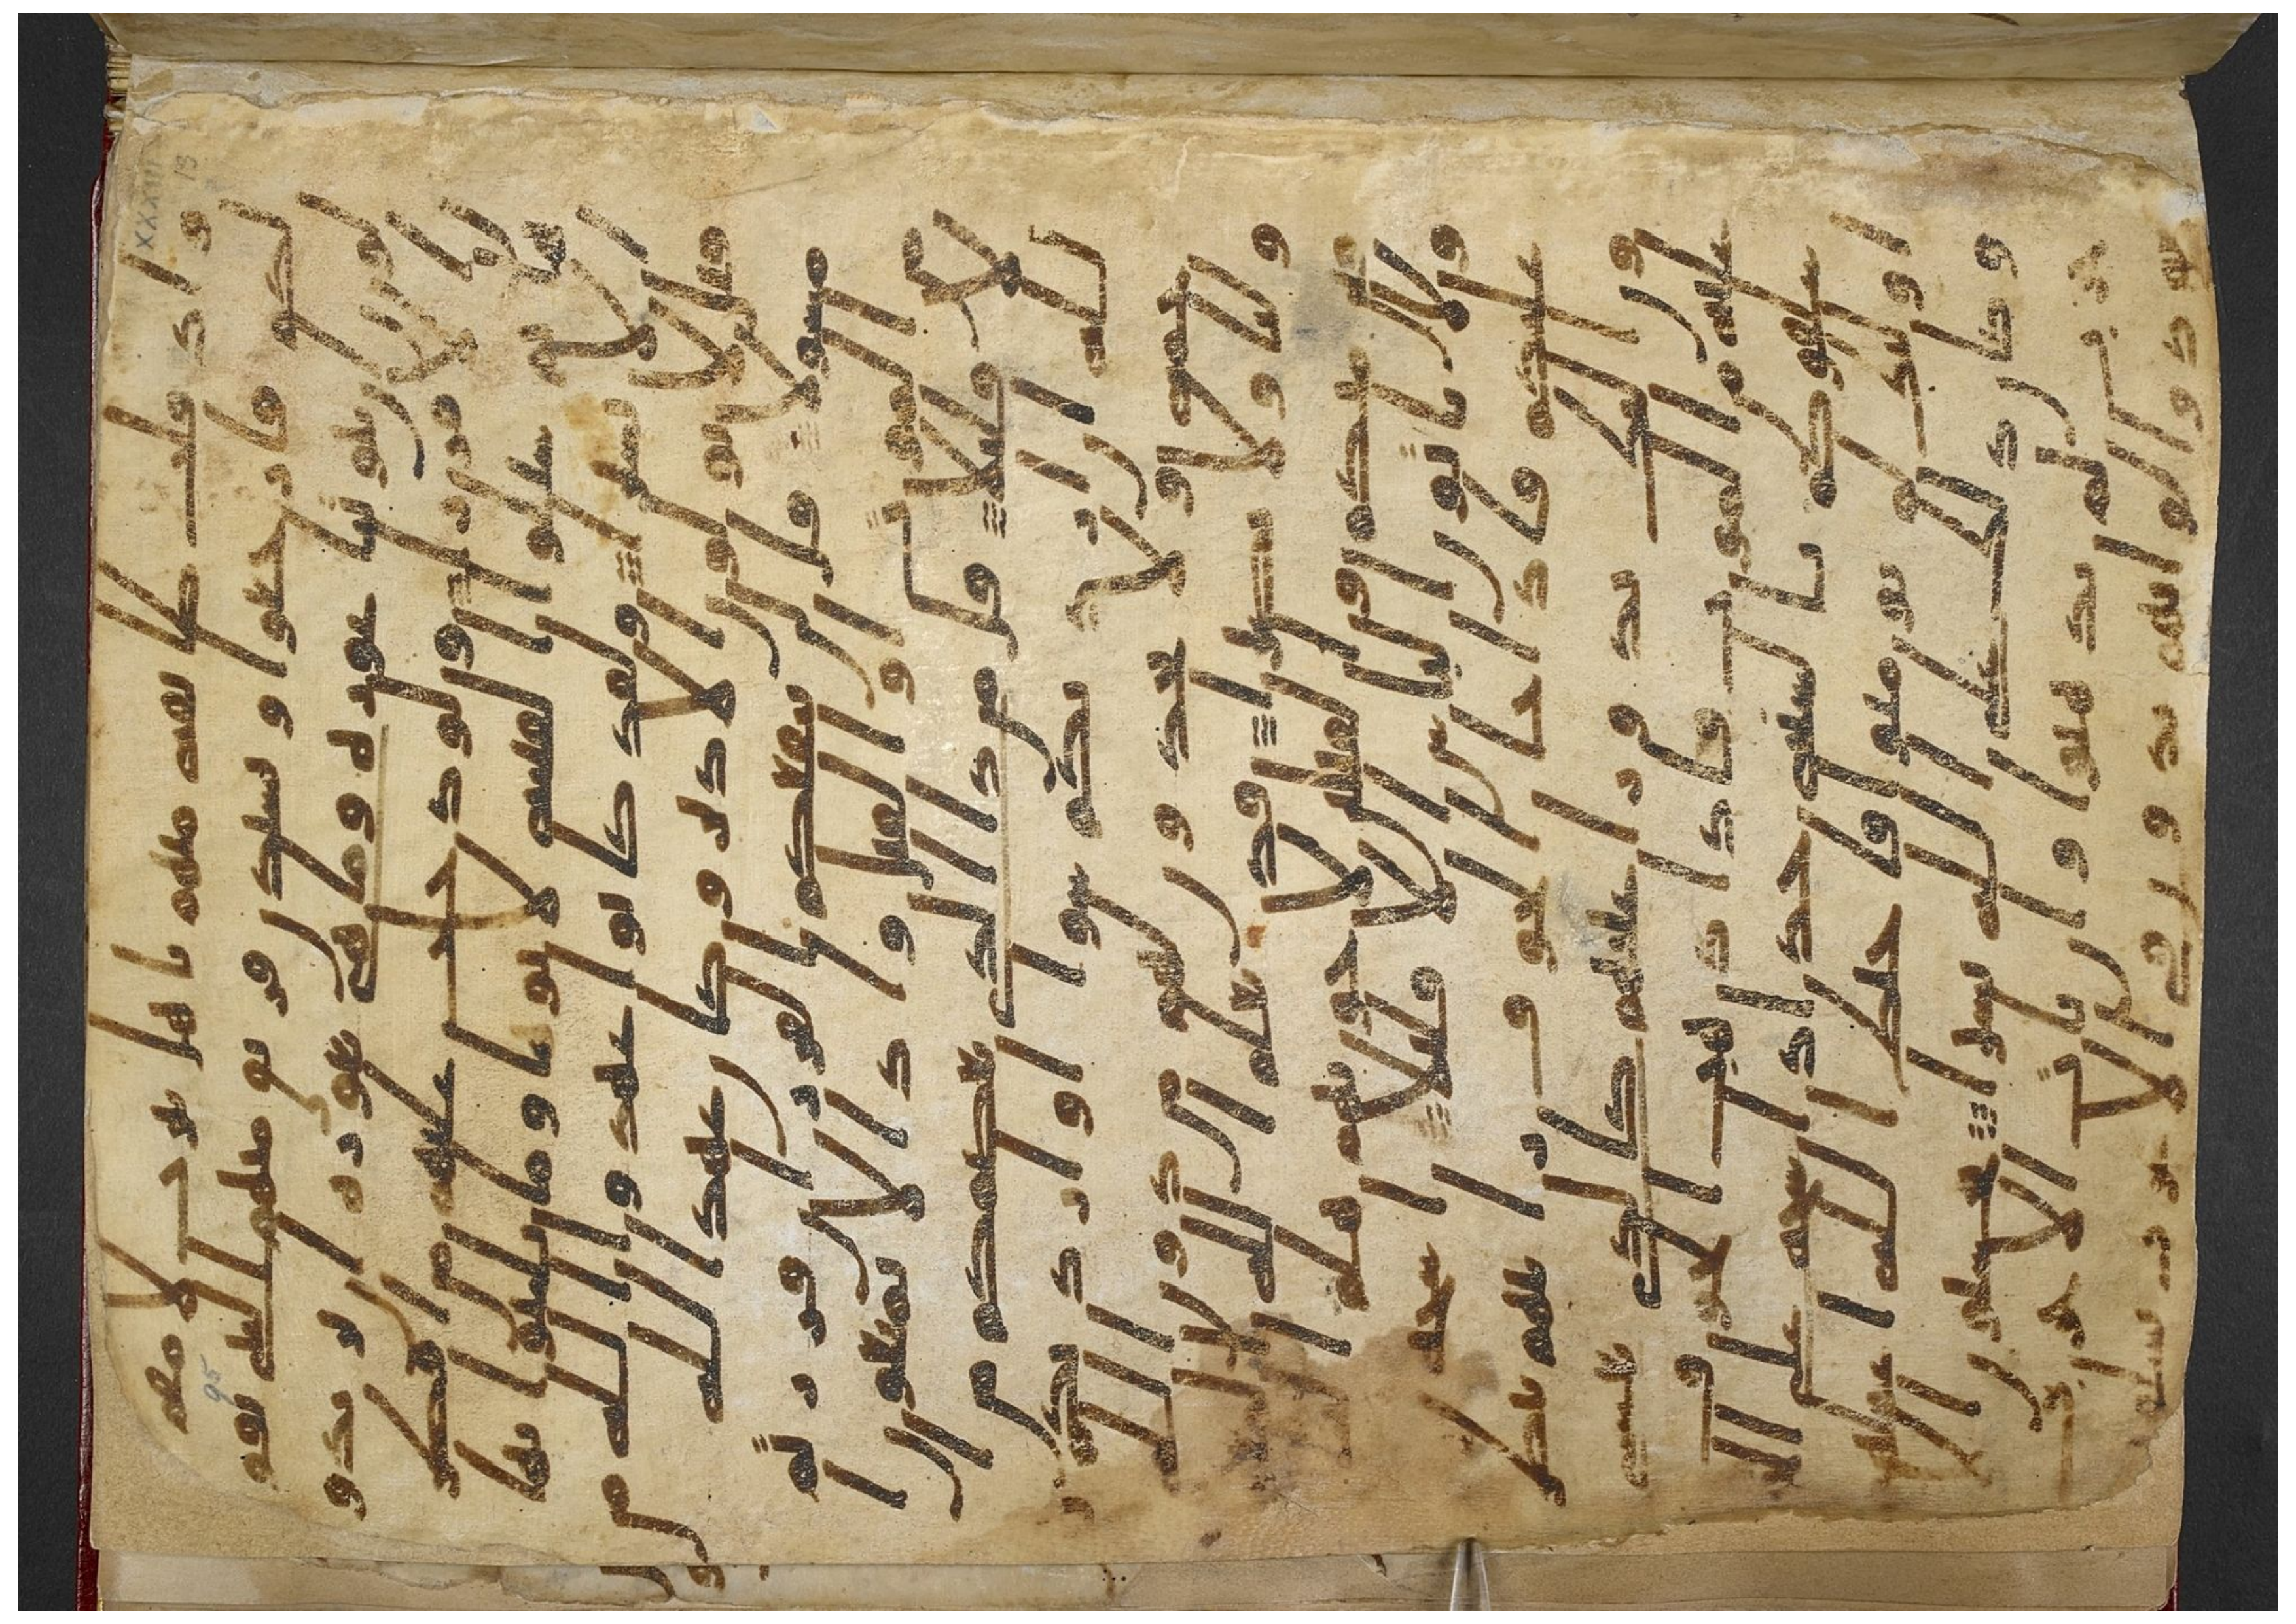 واذ قلت طايفه منهم ياهل يثرب لا مقم
لكم فارجعوا ويستذن فريق منهم النبي يقو
لون ان بيوتنا عوره وما هي بعوره ان يريدو
ن الا فرارا ولو دخلت عليهم من اقطر
ها ثم سلوا الفتنه لاتوها وما تلبثوا بها
الا يسيرا ولقد كانوا عهدوا الله من
قبل لا يولون الادبر وكان عهد الله
مسولا قل لن ينفعكم الفرر ان فررتم
من الموت او القتل واذا لا تمتعون ا
لا قليلا قل من ذا الذي يعصمكم من ا
لله ان اراد بكم سوا او اراد بكم ر
حمه ولا يجدون لهم من دون الله
وليا ولا نصيرا قد يعلم الله المعو
قين منكم والقايلين لاخونهم هلم ا
لينا ولا ياتون الباس الا قليلا اشحه
عليكم فاذا جا الخوف رايتهم ينظر
ون اليك تدور اعينهم كالذي يغشى
عليه من الموت فاذا ذهب الخوف
سلقوكم بالسنه حداد اشحه على ا
لخير اوليك لم يومنوا فاحبط الله اعملهم
وكان ذلك على الله يسيرا يحسبون الا
حزب لم يذهبوا وان يات الاحزب
يودوا لو انهم بدون في الاعرب يسلو